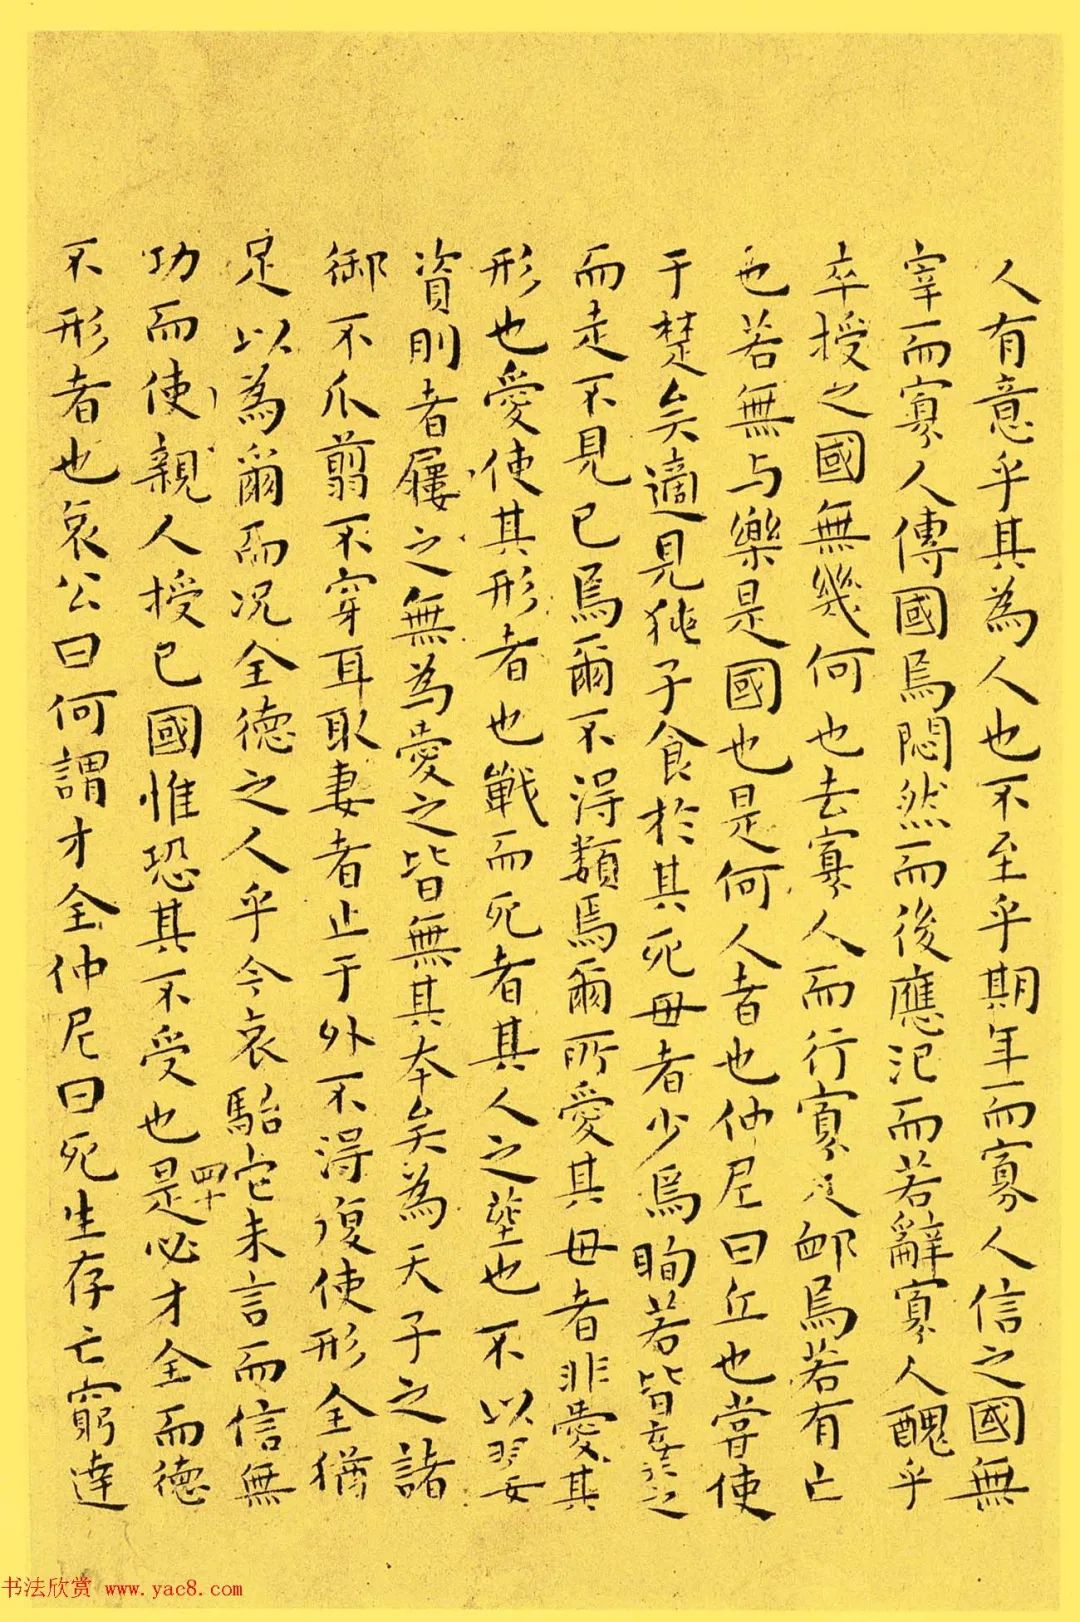 人有意乎其為人也不至乎期年而寡人信之國無
宰而寡人傳國焉悶然而後應氾而若辭寡人醜乎
卒授之國無幾何也去寡人而行寡人卹焉若有亡
也若無与樂是國也是何人者也仲尼曰丘也嘗使
于楚矣適見㹠子食於其死母者少焉眴若皆棄之
而走不見已焉爾不淂類焉爾所愛其母者非愛其
形也愛使其形者也戰而死者其人之塟也不以翣
資刖者屨之無為愛之皆無其本矣為天子之諸
御不爪翦不穿耳取妻者止于外不淂復使形全猶
足以為爾而况全德之人乎今哀駘它未言而信無
功而使親人授已國惟恐其不受也是必才全而德
不形者也哀公曰何謂才全仲尼曰死生存亡窮達
四十
书法欣赏 www.yac8.com